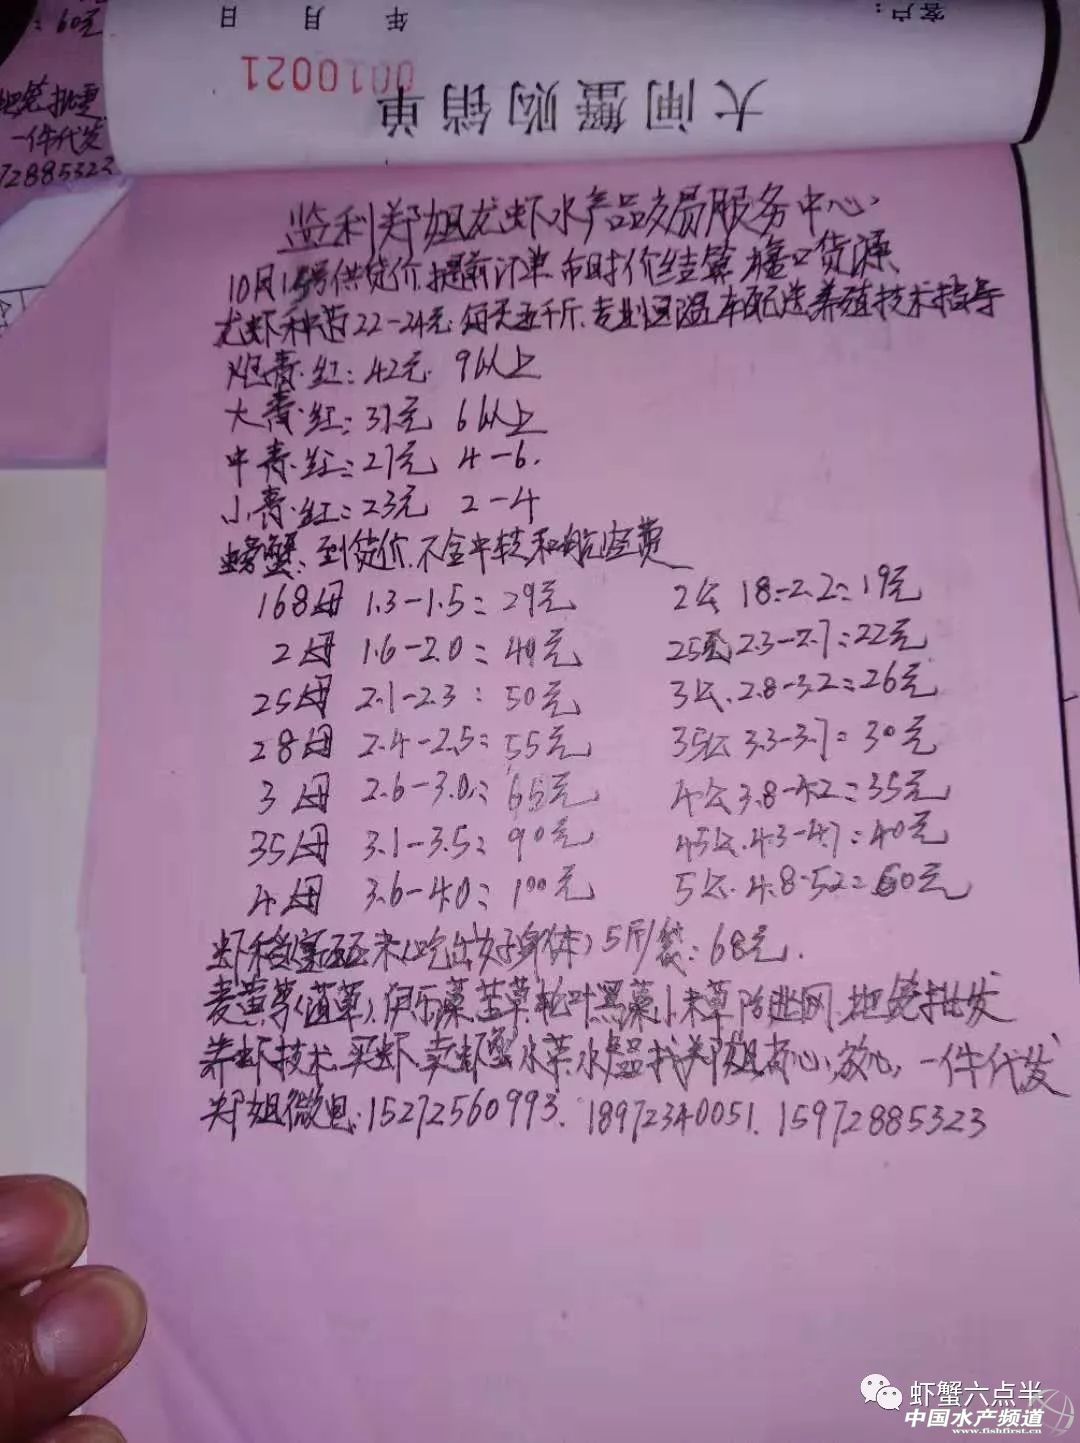 :60元
一件代发
72885323
年 月 日
客户：
0010021
大闸蟹购销单
监利郑姐龙虾水产品交易服务中心
10月15号供货价.提前订单 市时价结算 塘口货源
龙虾种苗22-24元.每天五千斤.专业恒温车配送 养殖技术指导
炮青.红:42元. 9以上
大青.红:31元 6以上
中青.红:27元 4-6.
小青.红:23元 2-4
螃蟹:到货价.不含中转和航空费
168母 1.3-1.5:29元 2公 18-2.2:19元
2母 1.6-2.0:40元 25公 2.3-2.7:22元
25母 2.1-2.3:50元 3公.2.8-3.2:26元
28母 2.4-2.5:55元 35公 3.3-3.7:30元
3母 2.6-3.0:65元 4公 3.8-4.2:35元
35母 3.1-3.5:90元 45公.4.3-4.7:40元
4母 3.6-4.0:100元 5公.4.8-5.2:60元
虾稻 米(吃出好身体)5斤/袋:68元.
麦黄草(菹草).伊乐藻.苦草.轮叶黑藻.小米草 防逃网.地笼批发
养虾技术.买虾.卖虾蟹 水草.水产品找郑姐省心,放心,一件代发
郑姐微电:15272560993.18972340051.15972885323
虾蟹六点半
中国水产频道
www.fishfirst.cn